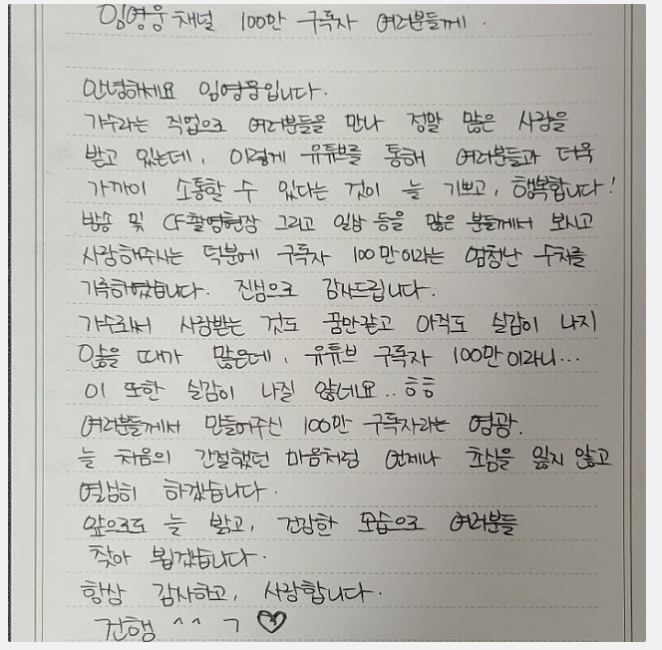 임영웅 채널 100만 구독자 여러분들께.
안녕하세요 임영웅입니다.
가수라는 직업으로 여러분들을 만나 정말 많은 사랑을
받고 있는데, 이렇게 유튜브를 통해 여러분들과 더욱
가까이 소통할 수 있다는 것이 늘 기쁘고, 행복합니다!
방송 및 CF촬영현장 그리고 일상 등을 많은 분들께서 보시고
사랑해주시는 덕분에 구독자 100만이라는 엄청난 숫자를
기록하였습니다. 진심으로 감사드립니다.
가수로써 사랑받는 것도 꿈만같고 아직도 실감이 나지
않을 때가 많은데, 유튜브 구독자 100만이라니...
이 또한 실감이 나질 않네요.. ㅎㅎ
여러분들께서 만들어주신 100만 구독자라는 영광.
늘 처음의 간절했던 마음처럼 언제나 초심을 잃지 않고
열심히 하겠습니다.
앞으로도 늘 밝고, 건강한 모습으로 여러분들
찾아 뵙겠습니다.
항상 감사하고, 사랑합니다.
건행 ^^ ㄱ ♡